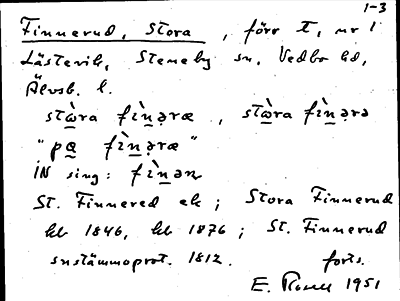 1-3
Finnerud, Stora, förr t, nr 1
Lästervik, Steneby sn, Vedbo hd,
Älvsb. l.
stὼra fìnəræ, stὼra fìnərə
"pɑ fìnəræ"
IN sing: fìnən
St. Finnered ek; Stora Finnerud
kb 1846, kb 1876; St. Finnerud
snstämmoprot. 1812. forts.
E. 1951